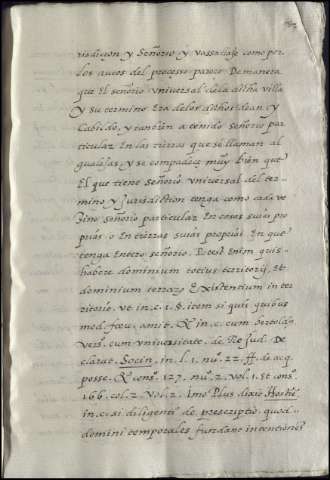 risdiçon y Señorio, y vassallaje como por
los autos del processo parece De manera
que El señorio universal de la dicha villa
y su termino Era de los dichos dean, y
Cabildo, y tambien a tenido señorio par
ticular En las tierras que se llaman al
gualajas, y se compadeçe muy bien que
El que tiene señorio universal del ter-
mino y Jurisdiction tenga como cada ve
zino señorio particular En cosas suias pro
prias o En tierras suias proprias En que
tenga Entero señorio. Potest Enim quis
habere dominium totius territorij, Et
dominium terrarum Existentium in ter
ritorio. ut in. c. 1. §. item si quis quibus
mod. feu. amit. & in. c. cum
veris. cum universitate. de Re Jud. De
clarat. Socin, in. l. 1. nu.º 22. ff. de acq.
posse. & consº. 127. nuº. 2. vol. 1. et cons.
166. col. 2. vol. 2. imo Plus dixit Hostie.
in. c. si diligenti de prescriptio. quod.
domini temporales fundant intentionem